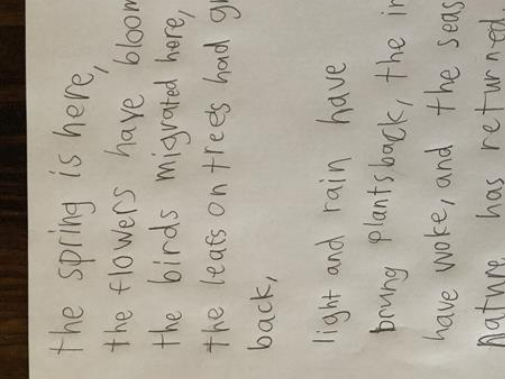 the spring is here,
the flowers have bloom
the birds migrated here,
the leafs on trees had gr
back,
light and rain have
brung plants back, the in
have woke, and the seas
Nature has returned.